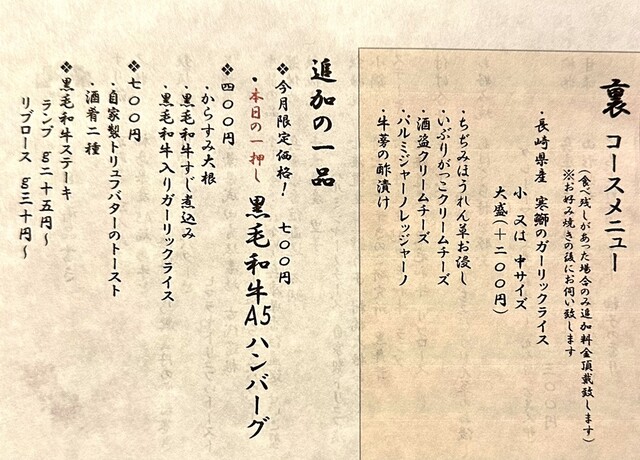 裏 コースメニュー
(食べ残しがあった場合のみ追加料金頂戴致します)
※お好み焼きの後にお伺い致します
・長崎県産 寒鰤のガーリックライス
小 又は 中サイズ
大盛(+二〇〇円)
・ちぢみほうれん草お浸し
・いぶりがっこクリームチーズ
・酒盗クリームチーズ
・パルミジャーノレッジャーノ
・牛蒡の酢漬け
追加の一品
❖今月限定価格! 七〇〇円
・本日の一押し 黒毛和牛A5ハンバーグ
❖四〇〇円
・からすみ大根
・黒毛和牛すじ煮込み
・黒毛和牛入りガーリックライス
❖七〇〇円
・自家製トリュフバターのトースト
・酒肴二種
❖黒毛和牛ステーキ
ランプ g二十五円〜
リブロース g三十円〜